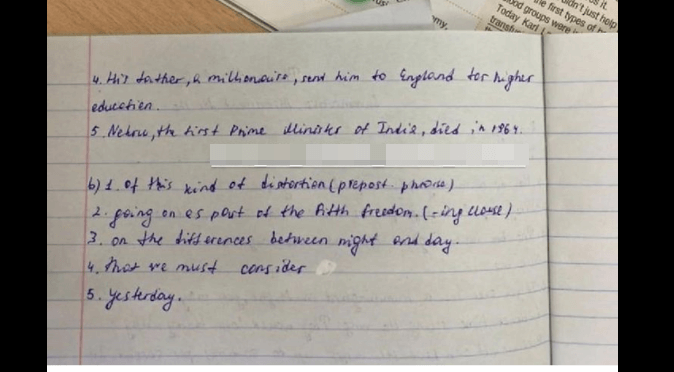 omy,
didn't just help
the first types of
blood groups were
Today Karl L
4. His father, a millionaire, send him to England for higher
education.
5. Nehru, the first Prime Minister of India, died in 1964.
b) 1. of this kind of distortion (prepost. phrase)
2. going on as part of the fifth freedom. (-ing clause)
3. on the differences between night and day.
4. that we must consider
5. yesterday.